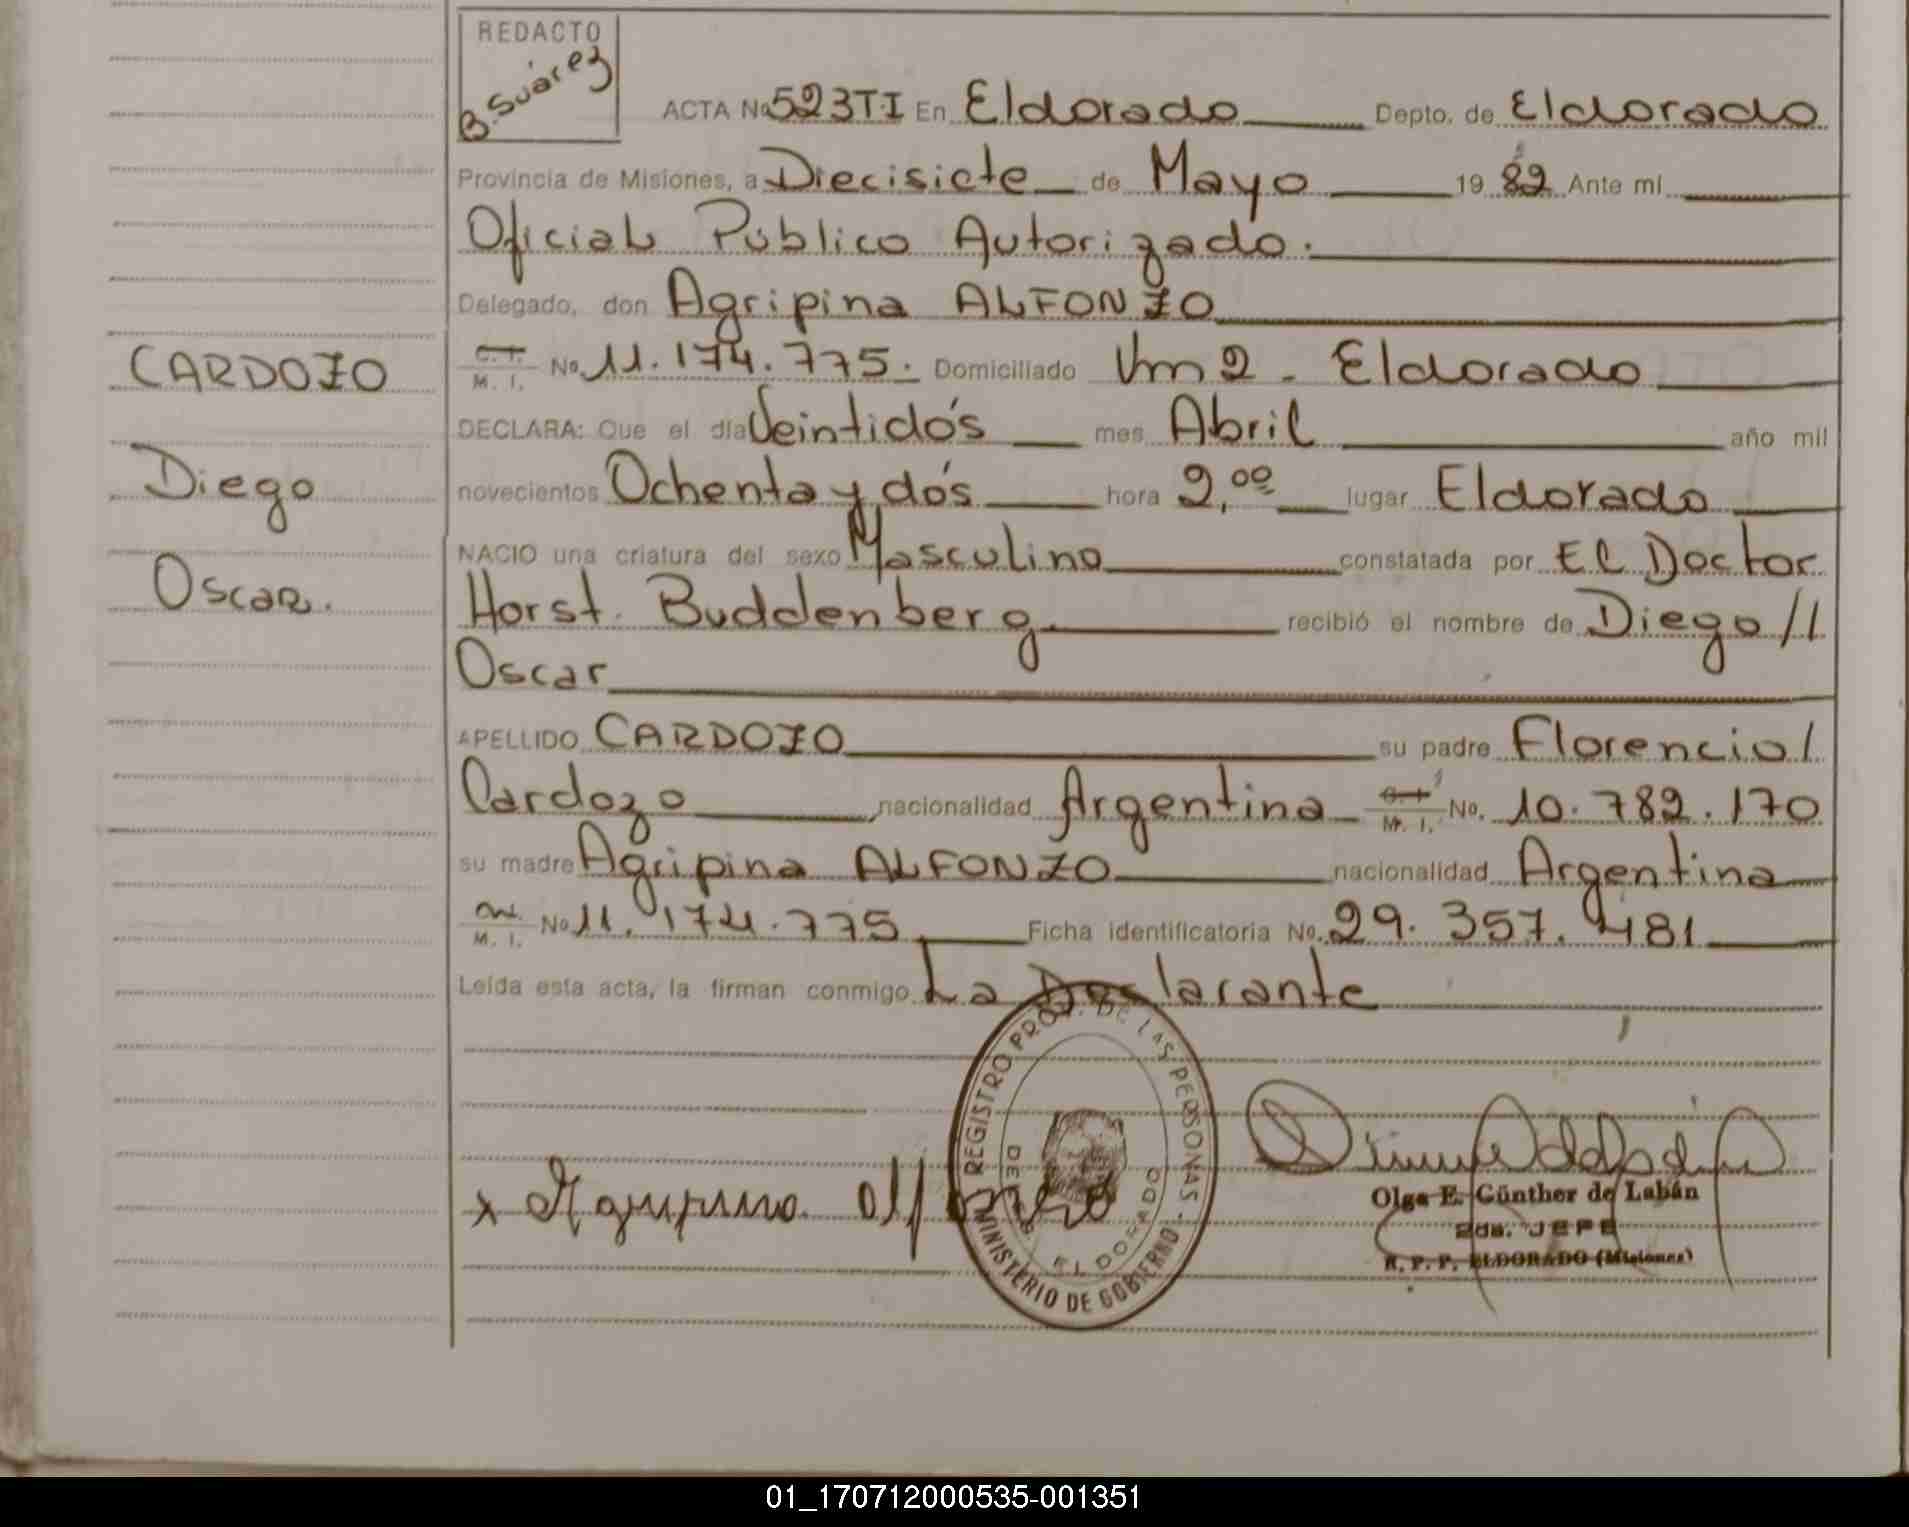 REDACTO
B. Suárez
ACTA No 523 T·I En Eldorado Depto. de Eldorado
Provincia de Misiones, a Diecisiete de Mayo 19 82 Ante mi
Oficial Público Autorizado.
Delegado, don Agripina ALFONZO
C. I. M. I. No. 11.174.775. Domiciliado Km 2 - Eldorado
CARDOZO
DECLARA: Que el día Veintidós mes Abril año mil
Diego
novecientos Ochenta y dós hora 2,00 lugar Eldorado
NACIO una criatura del sexo Masculino constatada por El Doctor
Oscar.
Horst. Buddenberg. recibió el nombre de Diego //
Oscar
APELLIDO CARDOZO su padre Florencio /
Cardozo nacionalidad Argentina C. I. M. I. No. 10.782.170
su madre Agripina ALFONZO nacionalidad Argentina
M. I. No 11.174.775 Ficha identificatoria No. 29.357.481
Leída esta acta, la firman conmigo La Declarante
REGISTRO PROV. DE LAS PERSONAS - MINISTERIO DE GOBIERNO
ELDORADO
x Agripina Alfonzo
Olga E. Günther de Labán
2da. JEFE
R. P. P. ELDORADO (Misiones)
01_170712000535-001351